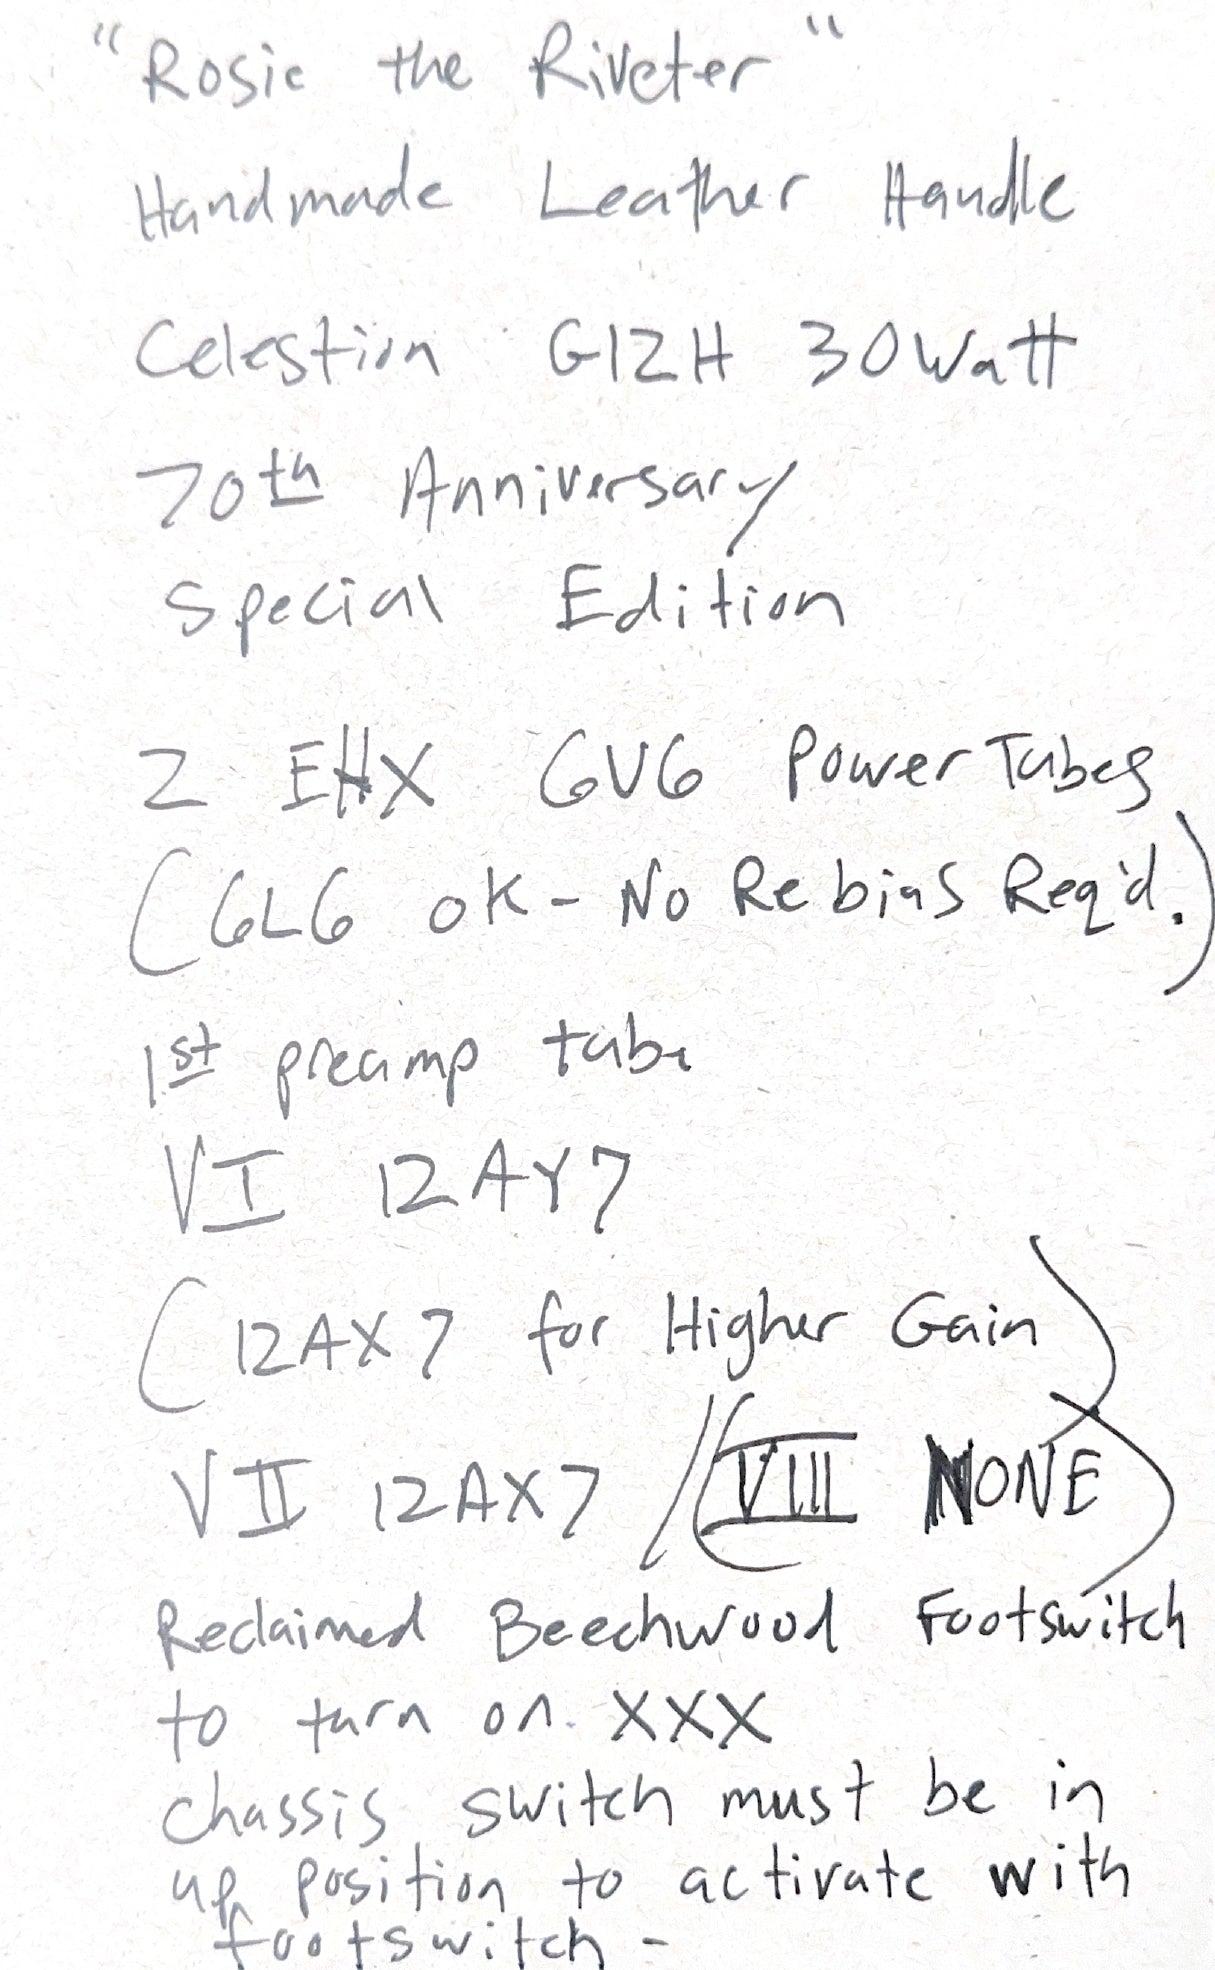 "Rosie the Riveter"
Handmade Leather Handle
Celestion G12H 30Watt
70th Anniversary
Special Edition
2 EHX 6V6 Power Tubes
(6L6 OK - No Rebias Req'd.)
1st preamp tube
VI 12AY7
(12AX7 for Higher Gain)
VII 12AX7 / (VIII NONE)
Reclaimed Beechwood Footswitch
to turn on XXX
chassis switch must be in
up position to activate with
footswitch -